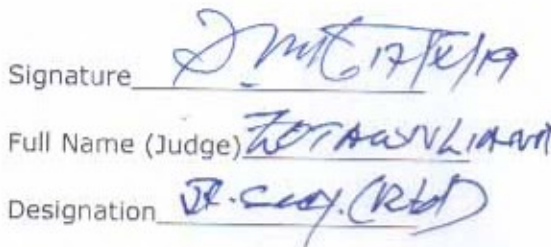 Signature 17/X/19
Full Name (Judge) ZOTAWNLIANA
Designation Jt. Secy. (Retd)